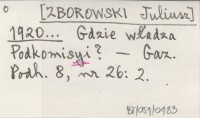 [ZBOROWSKI Juliusz]
1920... Gdzie władza
Podkomisyi? — Gaz.
Podh. 8, nr 26: 2.